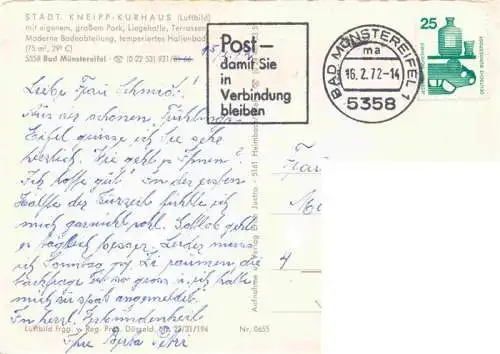 STÄDT. KNEIPP-KURHAUS (Luftbild)
mit eigenem, großem Park, Liegehalle, Terrassen
Moderne Badeabteilung, temperiertes Hallenbad
(75 m², 29° C)
5358 Bad Münstereifel - ☎ (0 22 53) 921/
Post –
damit Sie
in
Verbindung
bleiben
BAD MÜNSTEREIFEL 1
ma
16.2.72-14
5358
25
DEUTSCHE BUNDESPOST
Liebe Frau Schmidt!
Aus der schönen Frühlings-
Eifel grüsse ich Sie sehr
herzlich. Wie geht es Ihnen?
Ich hoffe gut! In der ersten
Hälfte der Kurzeit fühlte ich
mich garnicht wohl. Gottlob geht
es täglich besser. Leider muss
ich Sonntag Zi räumen die
Nachfrage ist so gross u. ich hatte
mich zu spät angemeldet.
In herzl. Verbundenheit
Ihre Berta
Frau
4
4
Aufnahme u. Verlag Justra - 5161 Heimbach
Luftbild Frgg. v. Reg. Präs. Düsseld. 23/31/194
Nr. 0655